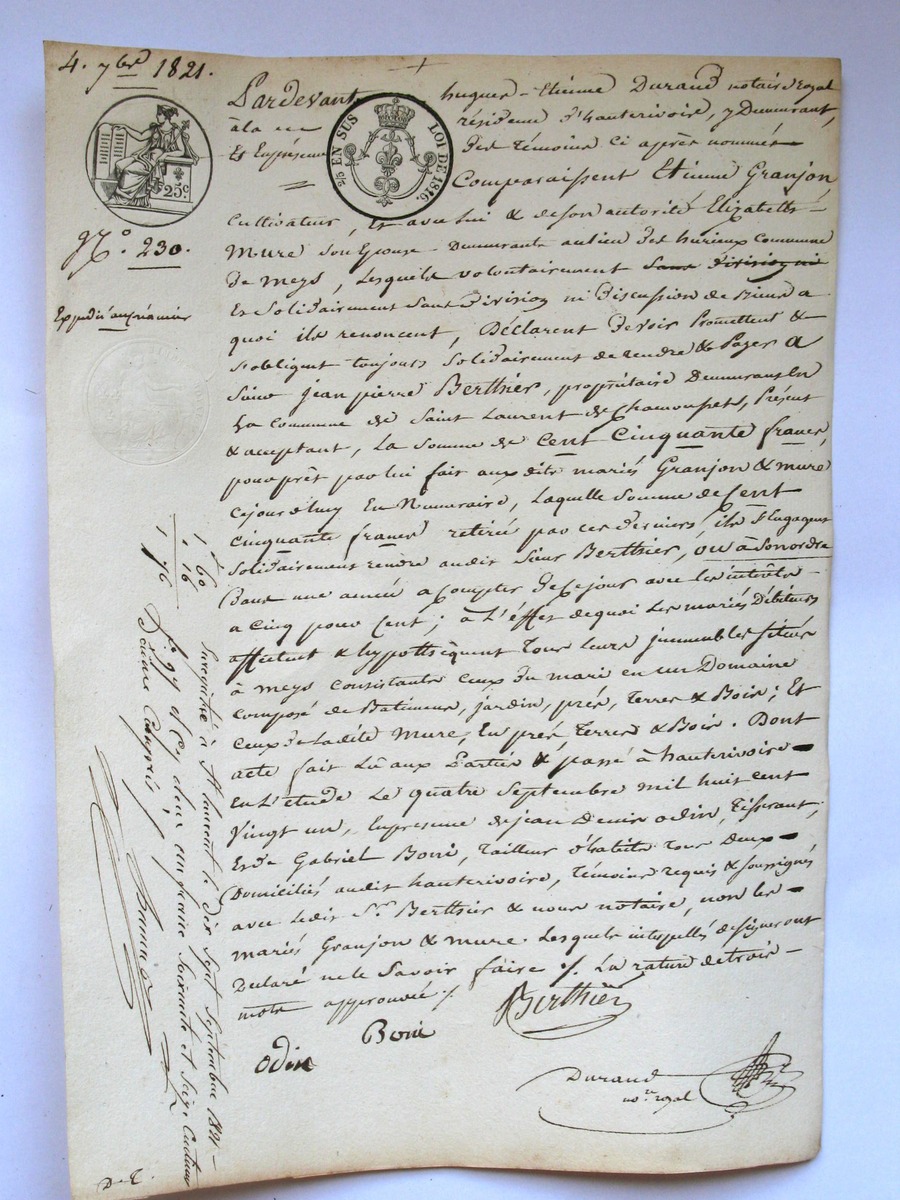 4. 7bre 1821.
25c.
2/5 EN SUS LOI DE 1816.
N.° 230.
Expédié au créancier
Pardevant hugues-Etienne Durand notaire royal
à la résidence d'hauterivoire, y Demeurant,
Et En présence Des témoins Ci après nommés
Comparaissent Etienne Granjon
Cultivateur, Et avec lui & de son autorité Elizabeth
Mure son Epouse Demeurants au lieu des hurieux Commune
De meys, Lesquels volontairement sans division ni
Et Solidairement sans Division ni Discussion de Biens a
quoi ils renoncent, Déclarent Devoir Promettent &
s'obligent toujours solidairement de rendre & Payer a
Sieur jean pierre Berthier, propriétaire Demeurant En
La Commune de Saint Laurent de Chamousset, Présent
& acceptant, La somme de Cent Cinquante francs,
pour prêt par lui fait aux dits mariés Granjon & mure
Cejourd'huy En Numeraire, Laquelle Somme de Cent
Cinquante francs retirée par ces Derniers, ils s'Engagent
Solidairement rendre audit Sieur Berthier, ou à Son ordre
Dans une année a Compter De Ce jour avec les intérêts
a Cinq pour Cent; à L'effet de quoi Les mariés Débiteurs
affectent & hypothèquent Tous Leurs jmmeubles situés
à meys Consistants Ceux Du mari en un Domaine
Composé de Batiments, jardin, prés, Terres & Bois; Et
Ceux De Ladite Mure, En prés, Terres & Bois. Dont
acte fait Lû aux Parties & passé à hauterivoire
En L'étude Le quatre Septembre mil huit cent
Vingt un, En presence de jean Denis odin, Tisserant,
Et De Gabriel Boni, Tailleur d'habits Tous Deux
Domiciliés audit hauterivoire, Témoins requis & soussignés
avec Ledit S.r Berthier & nous notaire, non les
mariés Granjon & mure Lesquels interpellés de signer ont
Déclaré ne le Savoir faire ./. La rature de trois
mots approuvée ./.
Berthier
odin Boni
Durand
no.re royal
1 60
16
1 76
Enregistré à St laurent le dix sept Septembre 1821